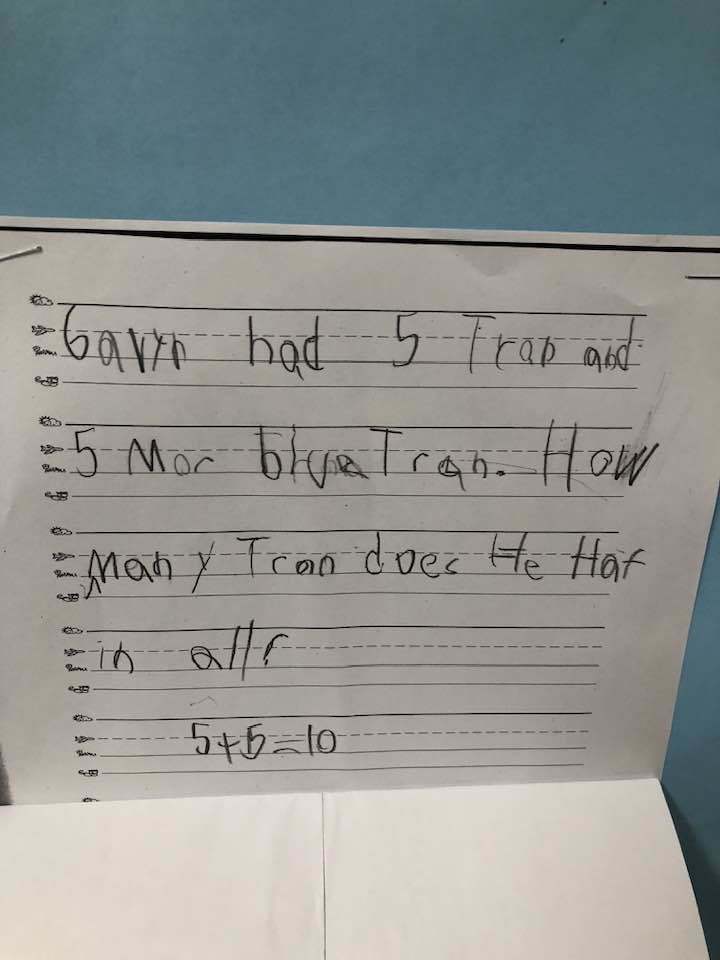 Gavyn had 5 Tran and
5 Mor blue Tran. How
Many Tran does He Haf
in all?
5+5=10